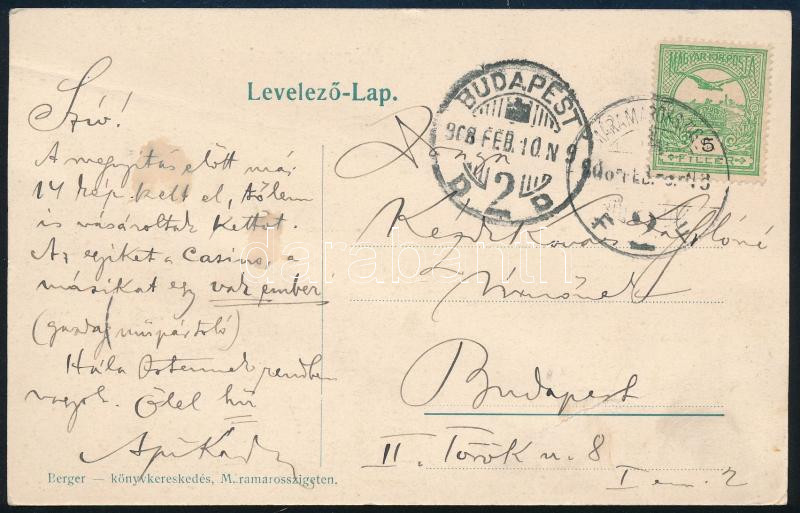 Levelező-Lap.
Szívó!
A megnyitás előtt már
14 kép kelt el, tőlem
is vásároltak kettőt.
Az egyiket a Casino, a
másikat egy vak ember
(gazdag műpártoló)
Hála Istennek rendben
vagyok. Ölel hű
Berger — könyvkereskedés, M.ramarosszigeten.
BUDAPEST
908 FEB.10.N 9
2
D D
MAGYAR KIR. POSTA
5
FILLÉR
2
Kovács
Úrnőnek
Budapest
II. Török u. 8
I em. 2
darabanth